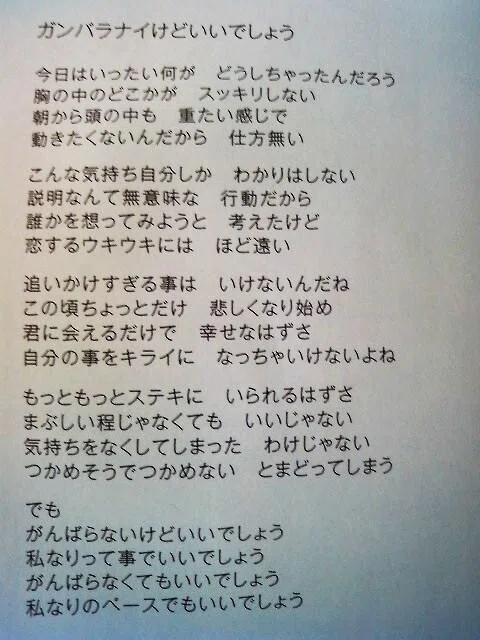 ガンバラナイけどいいでしょう
今日はいったい何が　どうしちゃったんだろう
胸の中のどこかが　スッキリしない
朝から頭の中も　重たい感じで
動きたくないんだから　仕方無い
こんな気持ち自分しか　わかりはしない
説明なんて無意味な　行動だから
誰かを想ってみようと　考えたけど
恋するウキウキには　ほど遠い
追いかけすぎる事は　いけないんだね
この頃ちょっとだけ　悲しくなり始め
君に会えるだけで　幸せなはずさ
自分の事をキライに　なっちゃいけないよね
もっともっとステキに　いられるはずさ
まぶしい程じゃなくても　いいじゃない
気持ちをなくしてしまった　わけじゃない
つかめそうでつかめない　とまどってしまう
でも
がんばらないけどいいでしょう
私なりって事でいいでしょう
がんばらなくてもいいでしょう
私なりのペースでもいいでしょう